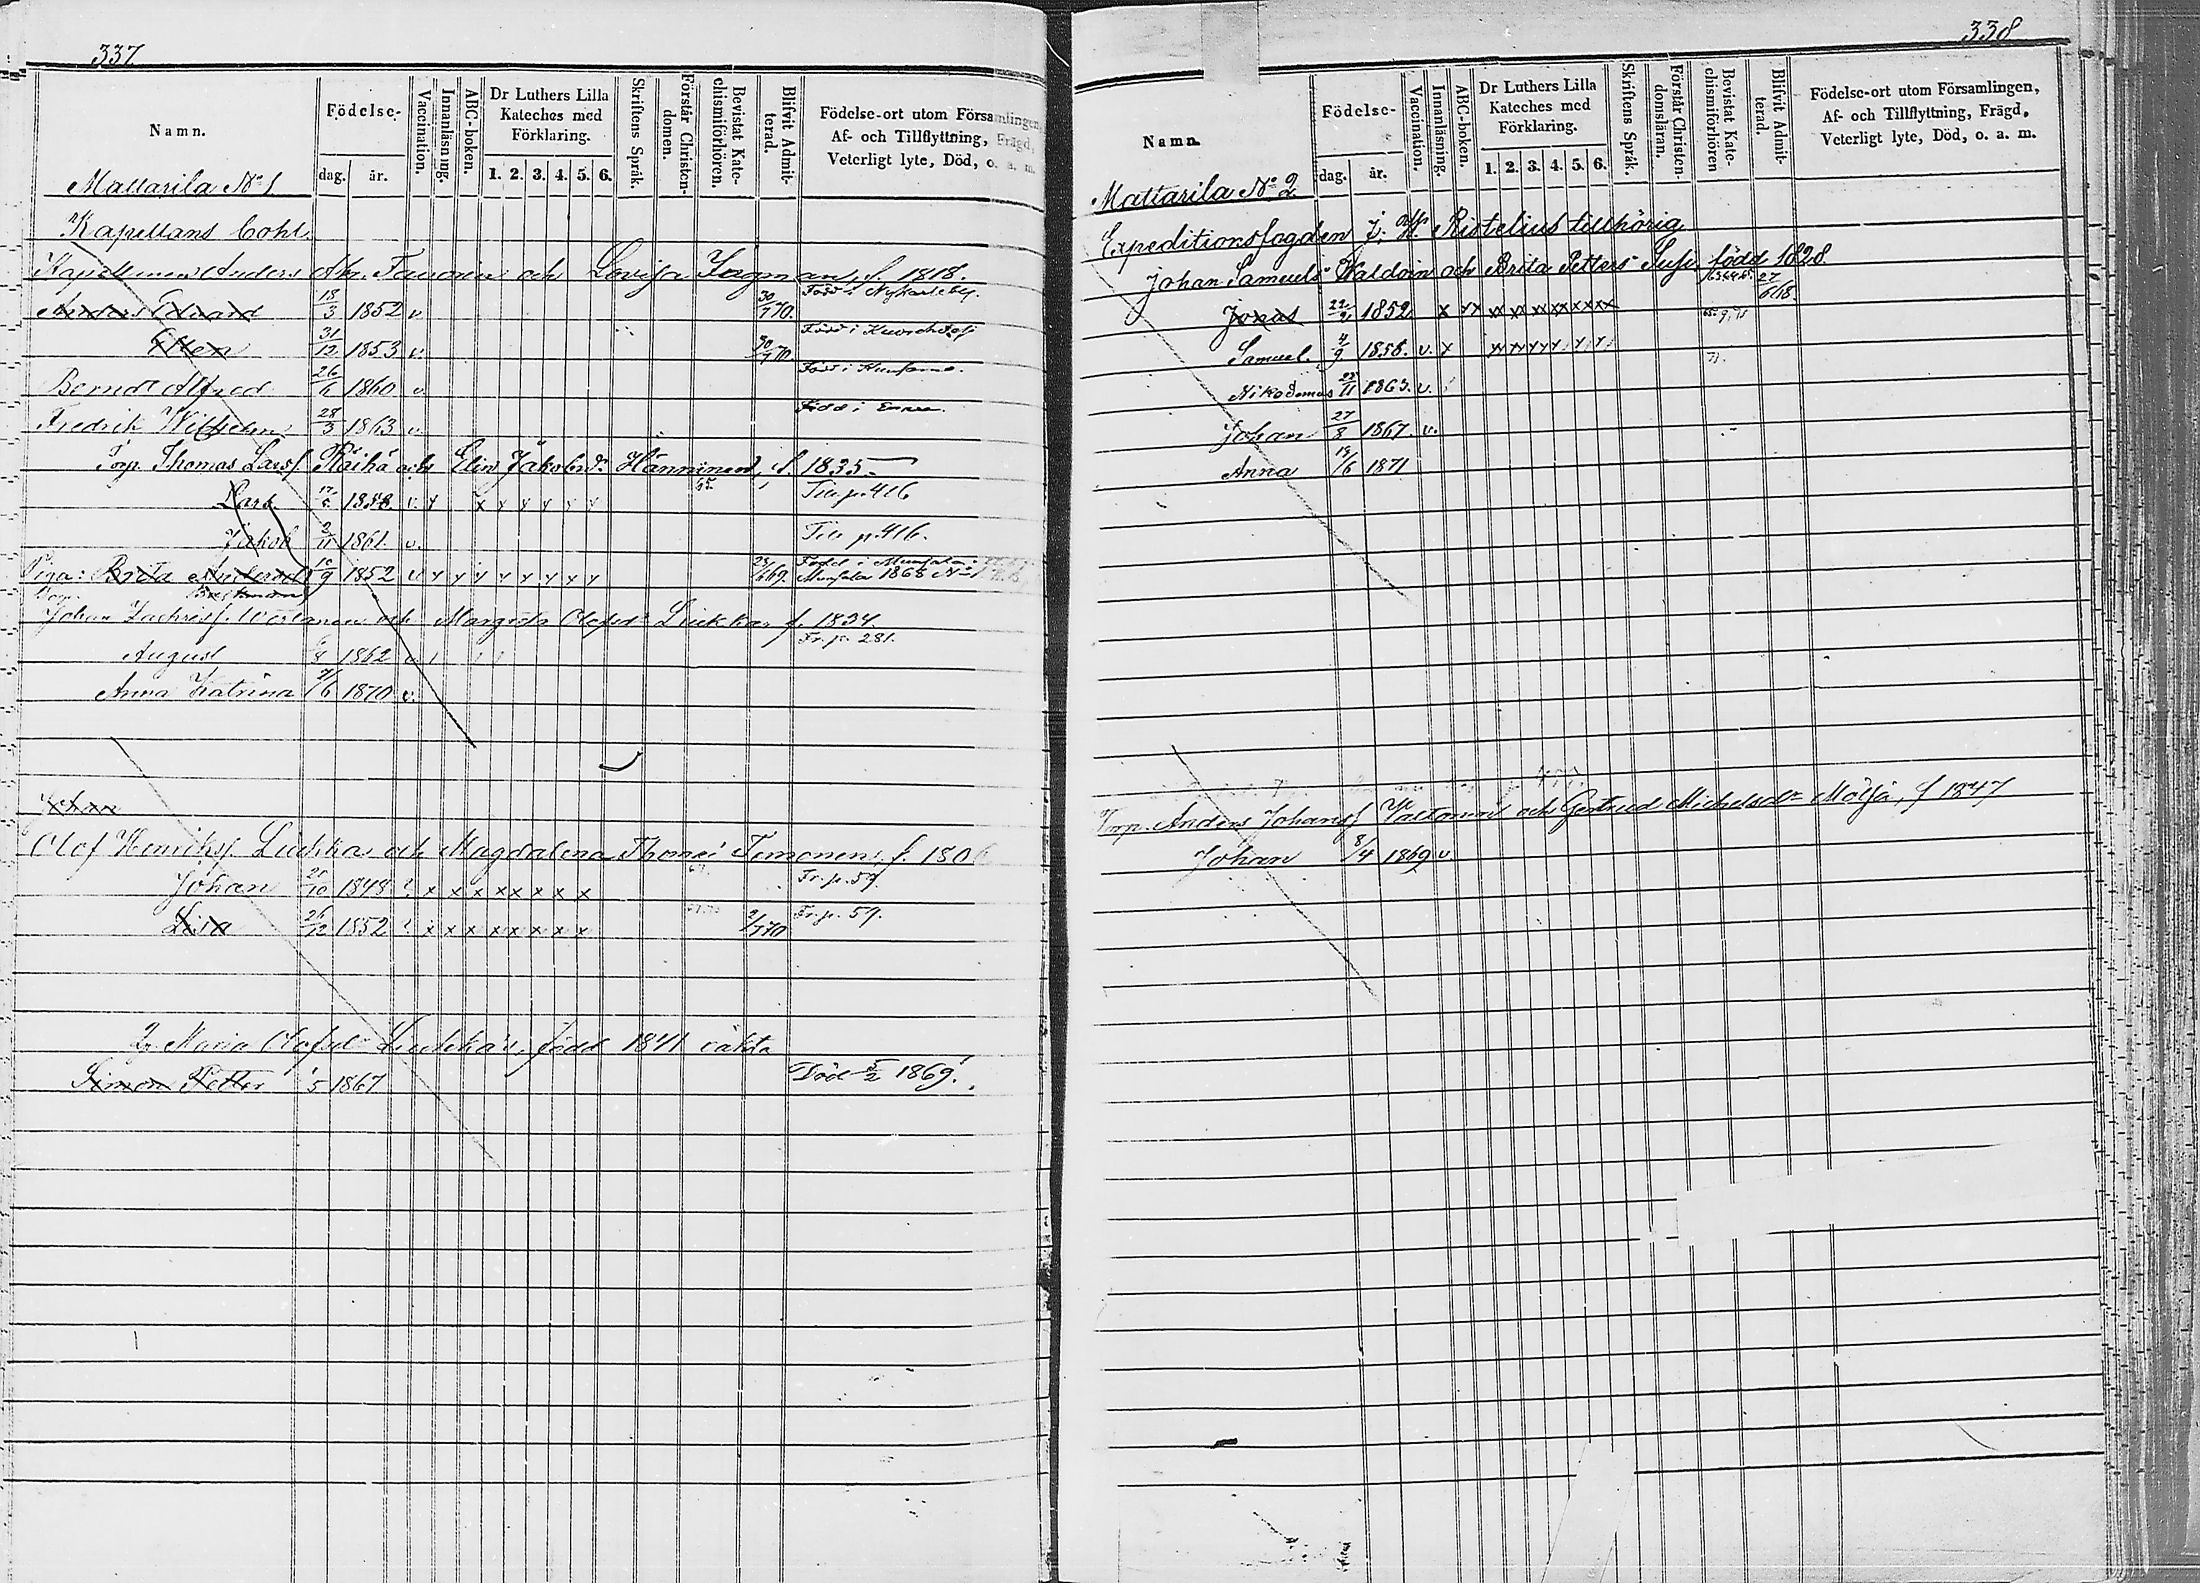 337
Namn.
Födelse-
dag. år.
Vaccination.
Innanläsning.
ABC-boken.
Dr Luthers Lilla
Kateches med
Förklaring.
1. 2. 3. 4. 5. 6.
Skriftens Språk.
Förstår Christen-
domen.
Bevistat Kate-
chismiförhören.
Blifvit Admit-
terad.
Födelse-ort utom Församlingen,
Af- och Tillflyttning, Frägd,
Veterligt lyte, Död, o. a. m.
Mattarila No 1
Kapellans
Anders och Lovisa Forsman, f. 1818.
Född i Nykarleby.
Anders Edvard 18/3 1852 v 30/7 70.
Född i
Ellen 31/12 1853 v. 30/7 70.
Född i
Berndt Alfred 26/6 1860 v.
Född i
Fredrik Wilhelm 28/3 1863 v
Torp. Thomas Larsf. Räihä och Elin Jakobsdr Hänninen, f. 1835
Till p. 416
Lars 1858. v. x x x x x x x
Jakob 2/11 1861. v. Till p. 416.
Född i
Piga: Brita Andersdr 10/9 1852 v x x x x x x x x 69. 1868 No 1
Johan Zachrisf. och Margeta Olofsdr Liukka f. 1834.
Fr. p. 281.
August 1862 v
Anna Katrina 1/6 1870 v.
Johan
Olof Henriksf. Liukka och Magdalena Thomædr Timonen, f. 1806
Johan 21/10 1848 x x x x x x x x Fr. p. 59.
Lisa 26/12 1852 x x x x x x x x 2/7 70 Fr. p. 59.
Maria Olofsdr Liukka, född 1841 oäkta
Simon Petter 5 1867 Död 5/2 1869.
338
Namn.
Födelse-
dag. år.
Vaccination.
Innanläsning.
ABC-boken.
Dr Luthers Lilla
Kateches med
Förklaring.
1. 2. 3. 4. 5. 6.
Skriftens Språk.
Förstår Christen-
domsläran.
Bevistat Kate-
chismiförhören
Blifvit Admit-
terad.
Födelse-ort utom Församlingen,
Af- och Tillflyttning, Frägd,
Veterligt lyte, Död, o. a. m.
Mattarila No 2
Expeditionsfogden J. W. Ristelius tillhörig
Johan Samuels och Brita Petters född 1828
Jonas 22/2 1852 x xx xx xx xx xx xx 27/6 68.
Samuel. 4/9 1858. v. x
Nikodemus 1863. v.
Johan 27/8 1867. v.
Anna 19/6 1871
Torp. Anders Johansf och Gertrud Michelsdr Mölsä, f 1847
Johan 8/4 1869 v